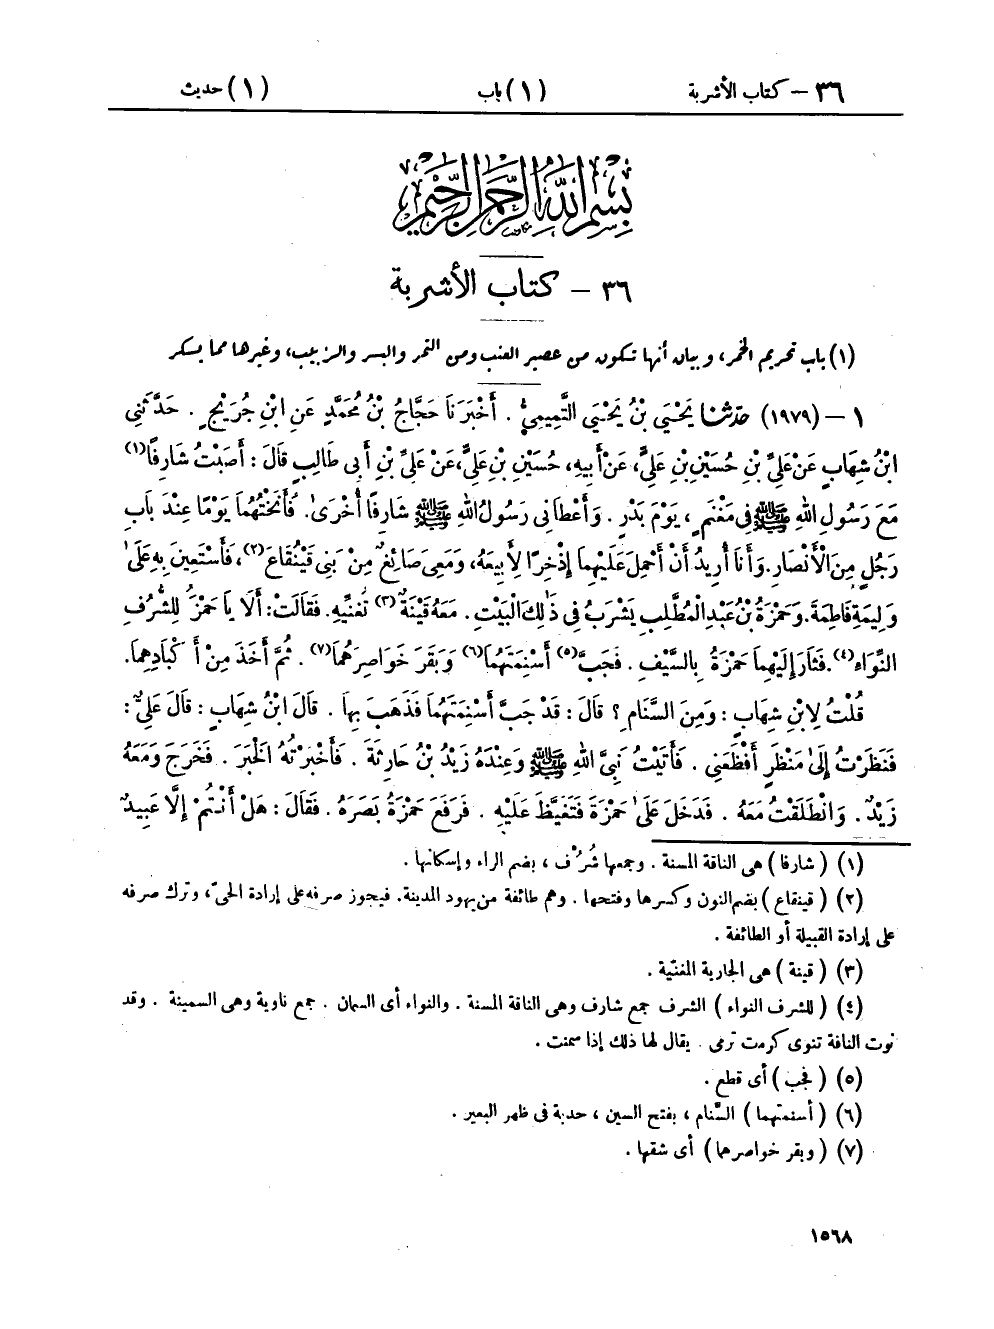 ٣٦ – كتاب الأشربة (١) باب (١) حديث
بِسْمِ اللهِ الرَّحْمٰنِ الرَّحِيْمِ
٣٦ – كتاب الأشربة
(١) باب تحريم الخمر، وبيان أنها تكون من عصير العنب ومن التمر والبسر والزبيب، وغيرها مما يسكر
١ – (١٩٧٩) حدّثنا يَحْيَى بْنُ يَحْيَى التَّمِيمِيُّ . أَخْبَرَنَا حَجَّاجُ بْنُ مُحَمَّدٍ عَنِ ابْنِ جُرَيْجٍ . حَدَّثَنِي
ابْنُ شِهَابٍ عَنْ عَلِيِّ بْنِ حُسَيْنِ بْنِ عَلِيٍّ، عَنْ أَبِيهِ، حُسَيْنِ بْنِ عَلِيٍّ، عَنْ عَلِيِّ بْنِ أَبِي طَالِبٍ قَالَ : أَصَبْتُ شَارِفًا(١)
مَعَ رَسُولِ اللهِ ﷺ فِي مَغْنَمٍ ، يَوْمَ بَدْرٍ . وَأَعْطَانِي رَسُولُ اللهِ ﷺ شَارِفًا أُخْرَىٰ. فَأَنَخْتُهُمَا يَوْمًا عِنْدَ بَابِ
رَجُلٍ مِنَ الْأَنْصَارِ. وَأَنَا أُرِيدُ أَنْ أَحْمِلَ عَلَيْهِمَا إِذْخِرًا لِأَبِيعَهُ، وَمَعِيَ صَائِغٌ مِنْ بَنِي قَيْنُقَاعَ(٢)، فَأَسْتَعِينَ بِهِ عَلَىٰ
وَلِيمَةِ فَاطِمَةَ. وَحَمْزَةُ بْنُ عَبْدِ الْمُطَّلِبِ يَشْرَبُ فِي ذَٰلِكَ الْبَيْتِ . مَعَهُ قَيْنَةٌ(٣) تُغَنِّيهِ . فَقَالَتْ: أَلَا يَا حَمْزَ لِلشُّرُفِ
النِّوَاءِ(٤). فَثَارَ إِلَيْهِمَا حَمْزَةُ بِالسَّيْفِ . فَجَبَّ(٥) أَسْنِمَتَهُمَا(٦) وَبَقَرَ خَوَاصِرَهُمَا(٧) . ثُمَّ أَخَذَ مِنْ أَكْبَادِهِمَا.
قُلْتُ لِابْنِ شِهَابٍ : وَمِنَ السَّنَامِ ؟ قَالَ : قَدْ جَبَّ أَسْنِمَتَهُمَا فَذَهَبَ بِهَا . قَالَ ابْنُ شِهَابٍ : قَالَ عَلِيٌّ :
فَنَظَرْتُ إِلَىٰ مَنْظَرٍ أَفْظَعَنِي . فَأَتَيْتُ نَبِيَّ اللهِ ﷺ وَعِنْدَهُ زَيْدُ بْنُ حَارِثَةَ . فَأَخْبَرْتُهُ الْخَبَرَ . فَخَرَجَ وَمَعَهُ
زَيْدٌ . وَانْطَلَقْتُ مَعَهُ . فَدَخَلَ عَلَىٰ حَمْزَةَ فَتَغَيَّظَ عَلَيْهِ . فَرَفَعَ حَمْزَةُ بَصَرَهُ . فَقَالَ : هَلْ أَنْتُمْ إِلَّا عَبِيدٌ
(١) (شارفا) هى الناقة المسنة . وجمعها شُرُف ، بضم الراء وإسكانها .
(٢) (قينقاع) بضم النون وكسرها وفتحها . وهم طائفة من يهود المدينة. فيجوز صرفه على إرادة الحىّ، وترك صرفه
على إرادة القبيلة أو الطائفة .
(٣) (قينة) هى الجارية المغنّية .
(٤) (للشرف النواء) الشرف جمع شارف وهى الناقة المسنة . والنواء أى السمان . جمع ناوية وهى السمينة . وقد
نوت الناقة تنوى كرمت ترمى . يقال لها ذلك إذا سمنت .
(٥) (فجب) أى قطع .
(٦) (أسنمتهما) السَّنام ، بفتح السين ، حدبة فى ظهر البعير .
(٧) (وبقر خواصرهما) أى شقها .
١٥٦٨